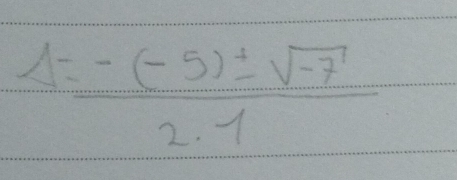 Δ = - (-5) ± √-7
2 . 1